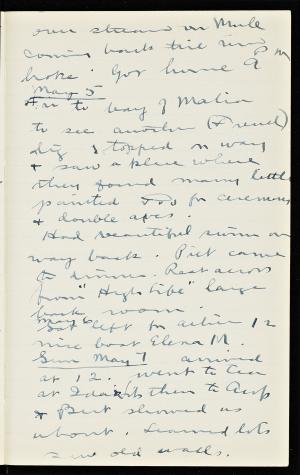 over stream on Mule
coming back tire rim
broke. Got home 9 PM
May 5
to bay of Malia
to see another (French)
dig. Stopped on way
& saw a place where
they found many little
painted for ceremony
& double axes.
Had beautiful swim on
way back. Piet came
to dinner. Rest across
from "High Life" large
back room.
May 6
Sat left for Athens 12
nice boat Elena M.
Sun May 7 arrived
at 12. went to
at then to Acrop
& Piet showed us
about. Learned lots
saw old walls.